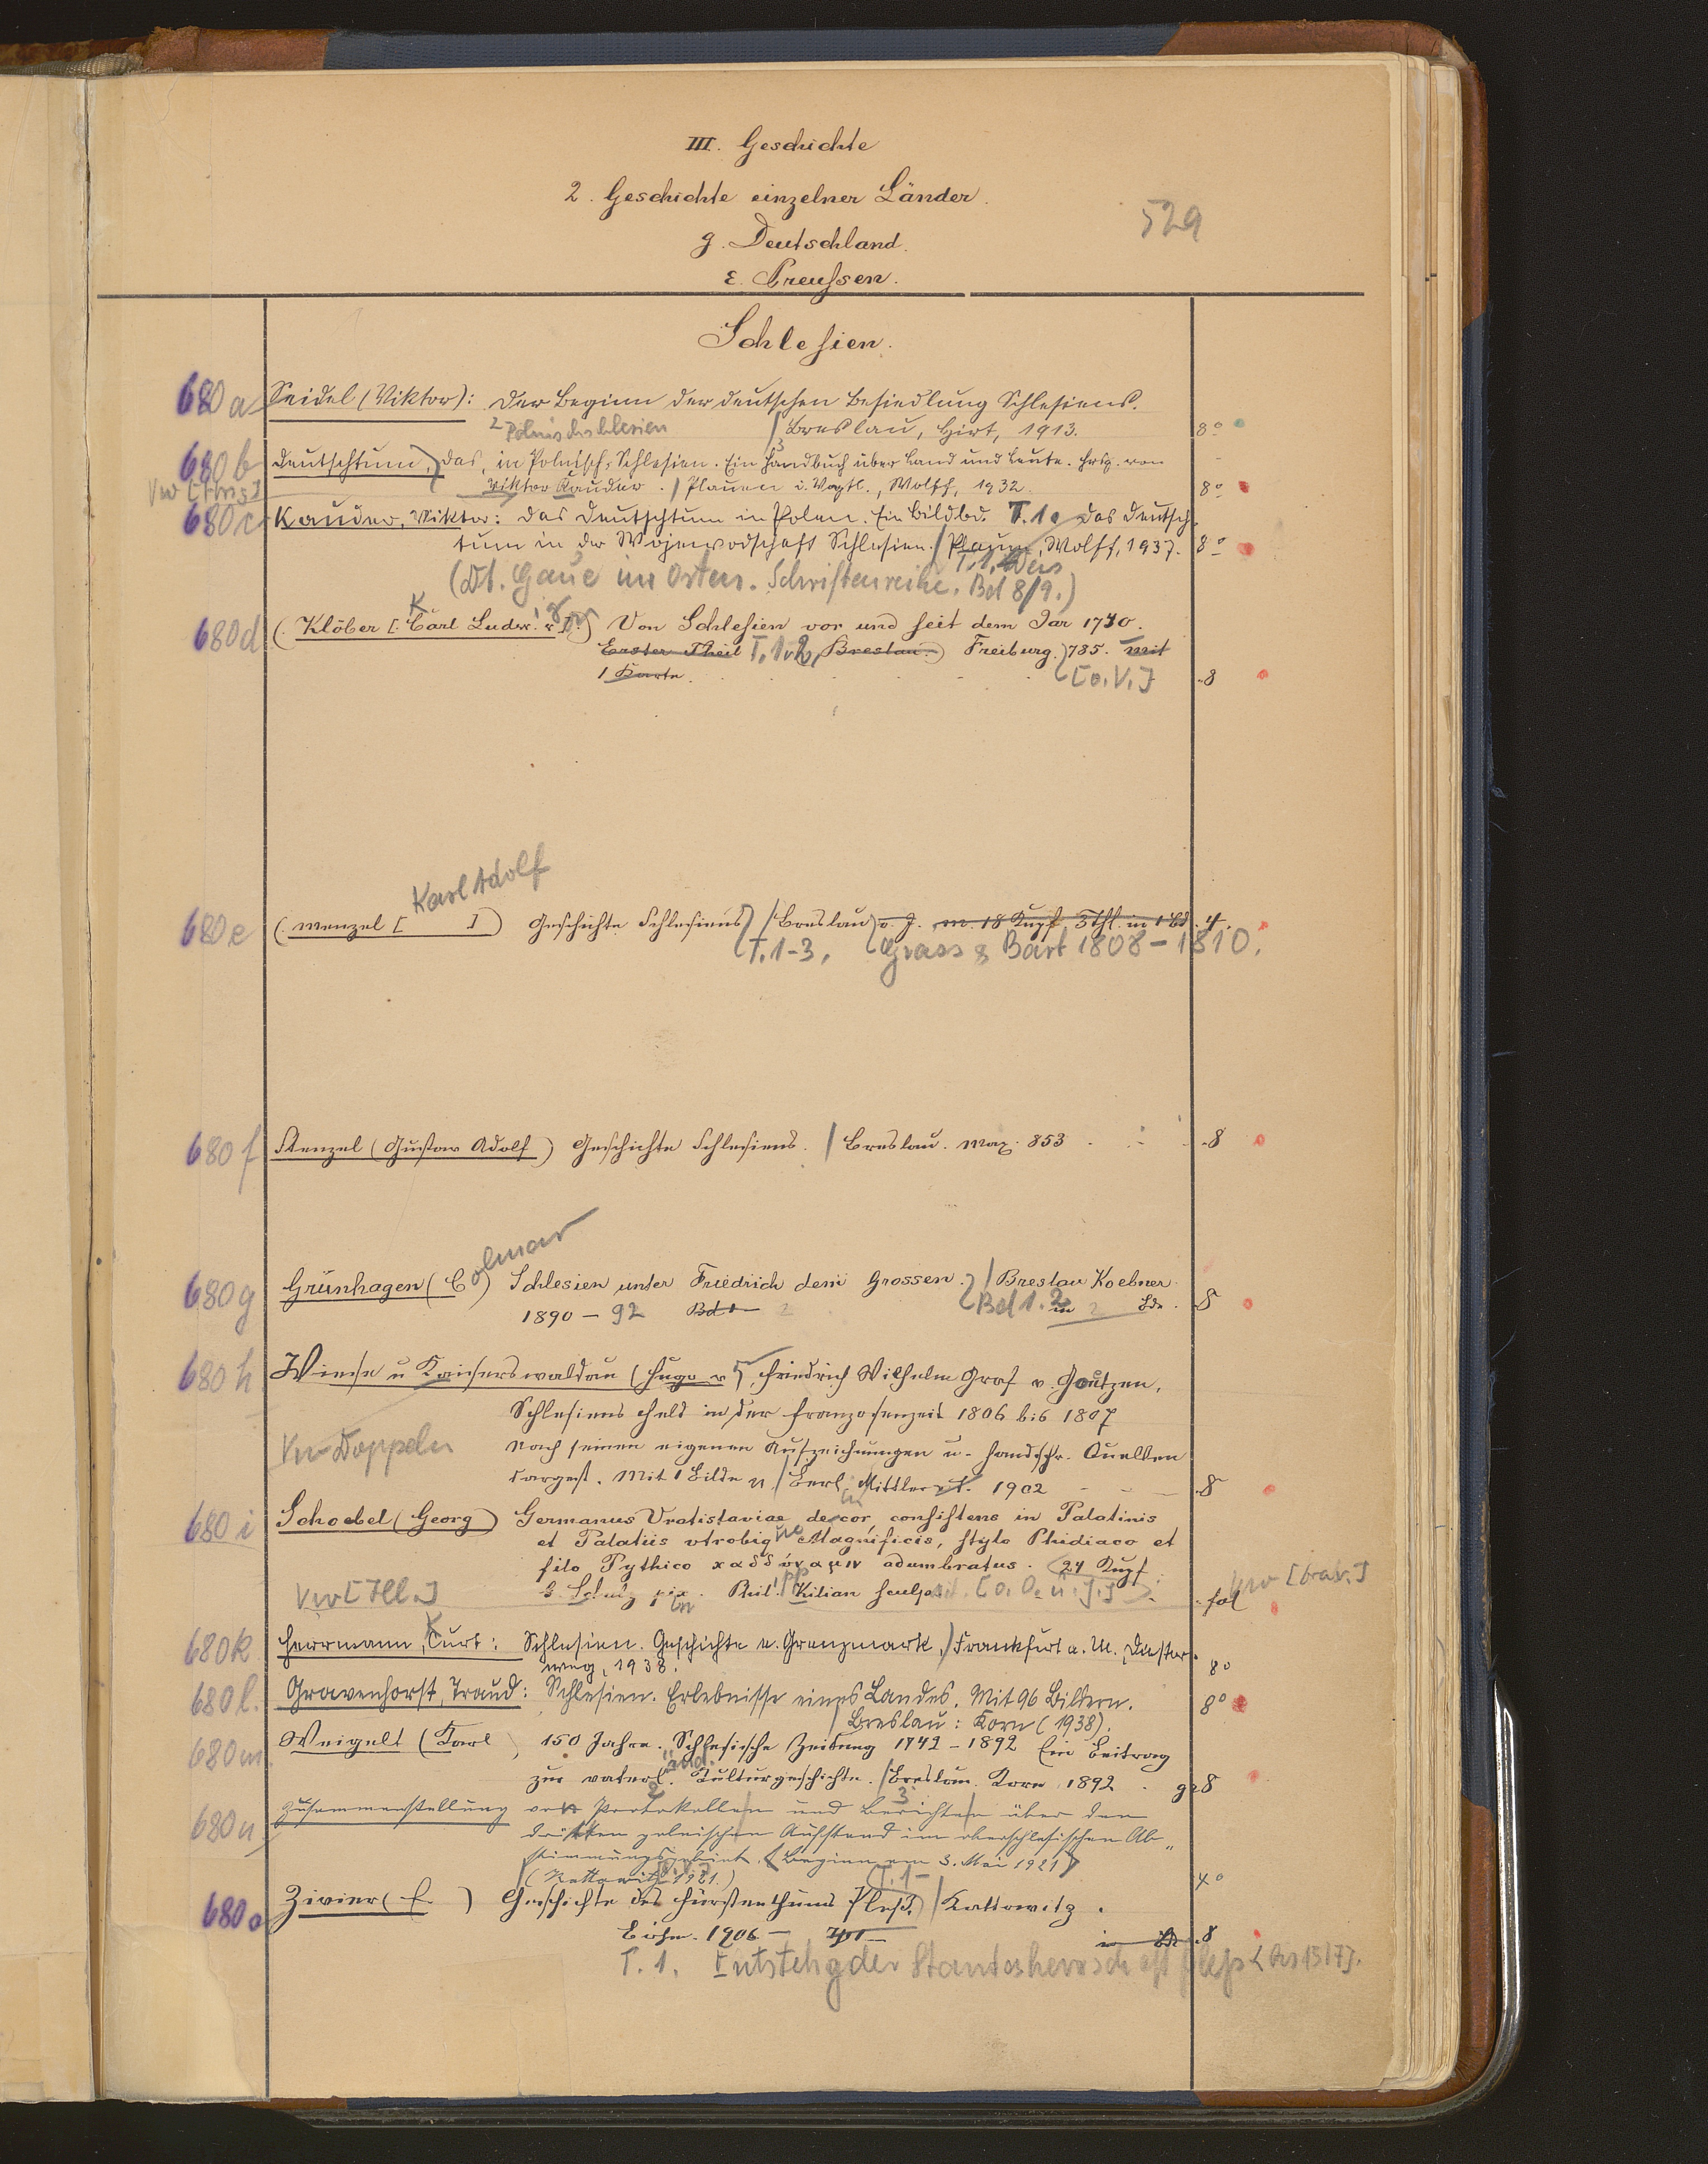 III. Geschichte
2. Geschichte einzelner Länder.
529
g. Deutschland.
ε. Preußen.
Schlesien.
680a Seidel (Viktor): Der Beginn der deutschen Besiedlung Schlesiens.
2 Polnischschlesien / Breslau, Hirt, 1913. 8°
680b Deutschtum, Das, in Polnisch-Schlesien. Ein Handbuch über Land und Leute. Hrsg. von
Vw [Hrsg] Viktor Kauder. / Plauen i. Vogtl., Wolff, 1932. 8°
680c Kauder, Viktor: Das Deutschtum in Polen. Ein Bildbd. T.1. Das Deutsch-
tum in der Wojewodschaft Schlesien. / Plauen, Wolff, 1937. 8°
(Dt. Gaue im Osten. Schriftenreihe. Bd 8/9.)
680d (Klöber [Carl Ludw. v.]) Von Schlesien vor und seit dem Jar 1740.
Erster Theil T.1.2, Breslau.) Freiburg. 785. mit
1 Karte. [o.V.] 8
Karl Adolf
680e (Menzel [ ]) Geschichte Schlesiens / Breslau o. J. m. 18 Kupf. 3 Thl. in 1 Bd. 4.
T.1-3, Grass & Bart 1808-1810.
680f Stenzel (Gustav Adolf) Geschichte Schlesiens. / Breslau. Max. 853 8
680g Grünhagen (Colmar) Schlesien unter Friedrich dem Grossen. / Breslau Koebner.
1890 - 92 Bd 1 - 2 Bd 1.2 in 2 Bde. 8
680h Wiese u Kaiserswaldau (Hugo v), Friedrich Wilhelm Graf v. Goetzen,
Schlesiens Held in der Franzosenzeit 1806 bis 1807
Vw Doppeln Nach seinen eigenen Aufzeichnungen u. handschr. Quellen
dargest. Mit 1 Bilde / Berl. Mittler 1902 8
680i Schoebel (Georg) Germanus Vratislaviae decor, consistens in Palatinis
et Palatiis utrobique Magnificis, stylo Phidiaco et
filo Pythico adumbratus. 24 Kupf.
Vw [Ill.] Phil. Kilian sculps. [o. O. u. J.] fol
680k Herrmann, Kurt: Schlesien. Geschichte e. Grenzmark, / Frankfurt a. M., Diester-
weg, 1938. 8°
680l. Gravenhorst, Traud: Schlesien. Erlebnisse eines Landes. Mit 96 Bildern. 8°
/ Breslau: Korn (1938).
680m Weigelt (Karl) 150 Jahre. Schlesische Zeitung 1742 - 1892 Ein Beitrag
zur vaterländ. Kulturgeschichte. / Breslau. Korn 1892. gr 8
680n Zusammenstellung von Protokollen und Berichten über den
dritten polnischen Aufstand im oberschlesischen Ab-
stimmungsgebiet. (Beginn am 3. Mai 1921)
(Kattowitz 1921.) 4°
680o Zivier (E.) Geschichte des Fürstenthums Pleß. / Kattowitz.
Böhm. 1906 - 8
T. 1. Entstehg der Standesherrschaft Pless < bis 1517].